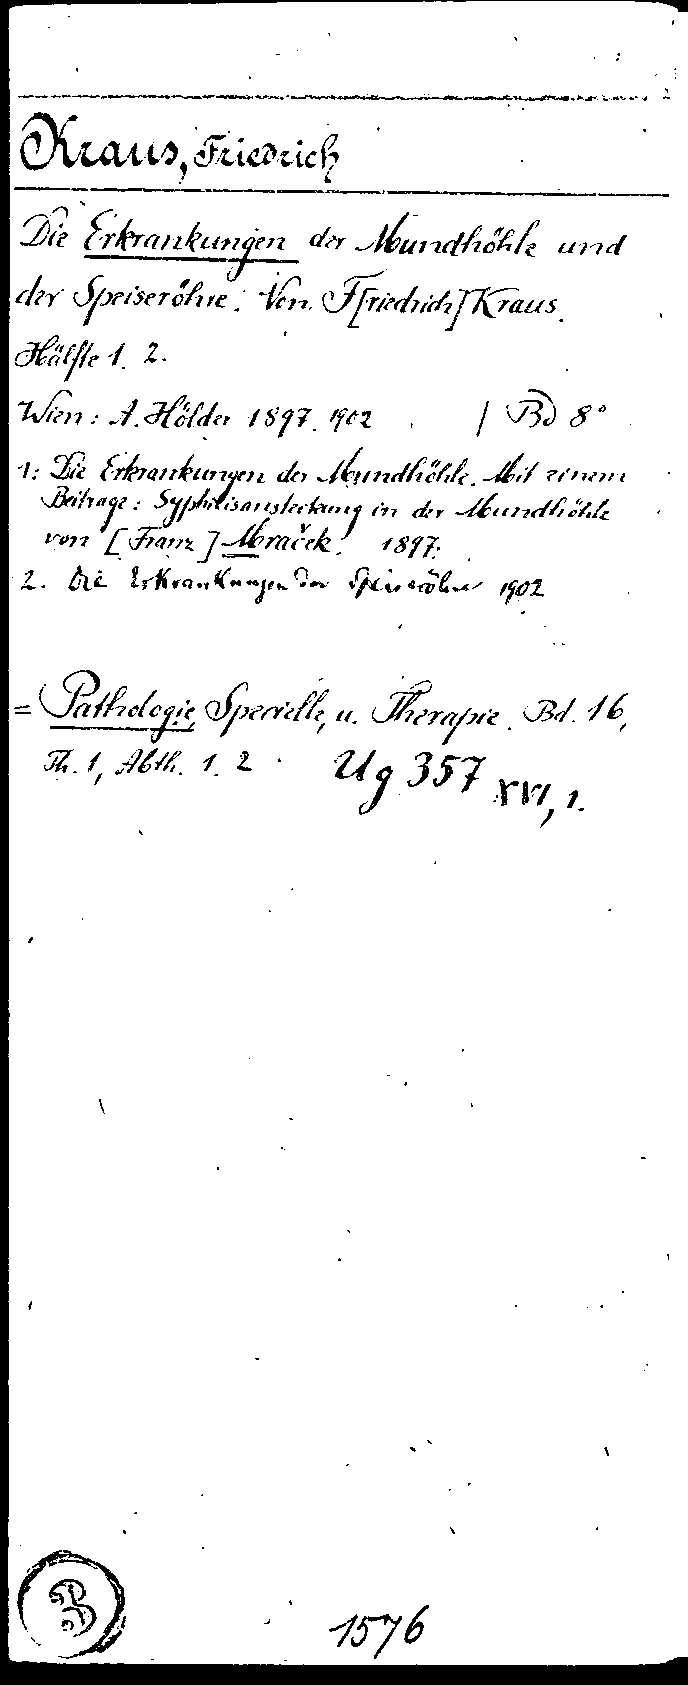 Kraus, Friedrich
Die Erkrankungen der Mundhöhle und
der Speiseröhre. Von F[riedrich] Kraus.
Hälfte 1. 2.
Wien: A. Hölder 1897. 1902 / Bd 8°
1: Die Erkrankungen der Mundhöhle. Mit einem
Beitrage: Syphilisansteckung in der Mundhöhle
von [Franz] Mraček. 1897.
2. Die Erkrankungen der Speiseröhre 1902
= Pathologie, Specielle, u. Therapie. Bd. 16,
Th. 1, Abth. 1. 2
Ug 357 XVI, 1.
B
1576